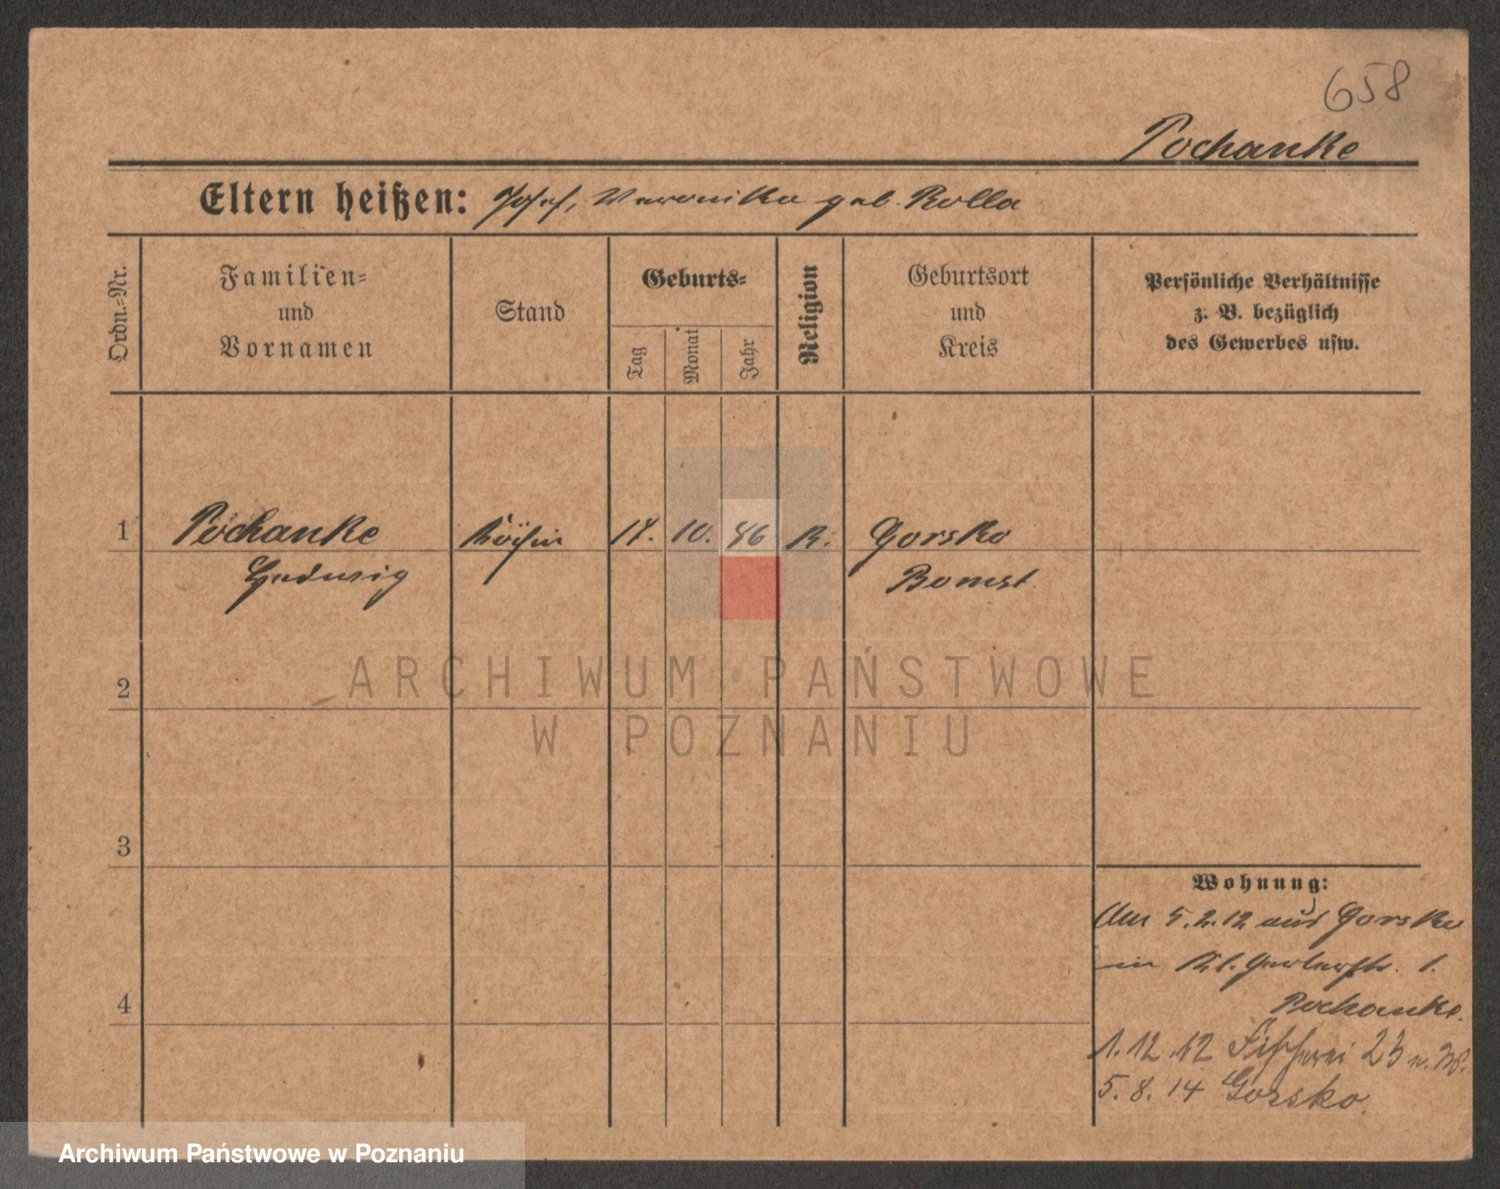 658
Pochanke
Eltern heißen: Josef, Veronika geb. Rolla
Ordn.-Nr.
Familien-
und
Vornamen
Stand
Geburts-
Tag
Monat
Jahr
Religion
Geburtsort
und
Kreis
Persönliche Verhältnisse
z. B. bezüglich
des Gewerbes usw.
1 Pochanke Köchin 17. 10. 96 K. Gorsko
Hedwig Bomst.
2
ARCHIWUM PAŃSTWOWE
W POZNANIU
3
Wohnung:
Am 5.2.12 aus Gorsko
in Kl. Gerberstr. 1.
Pochanke.
4
1.12.12 Fischerei 23
5.8.14 Gorsko.
Archiwum Państwowe w Poznaniu